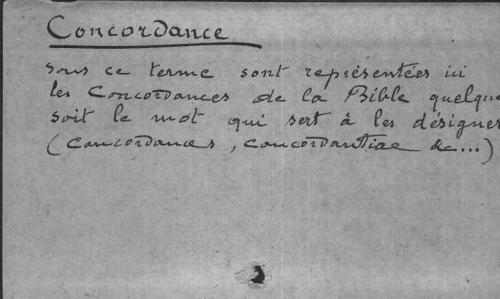 Concordance
sous ce terme sont représentées ici
les Concordances de la Bible quelque
soit le mot qui sert à les désigner
(Concordances, concordantiae &c...)